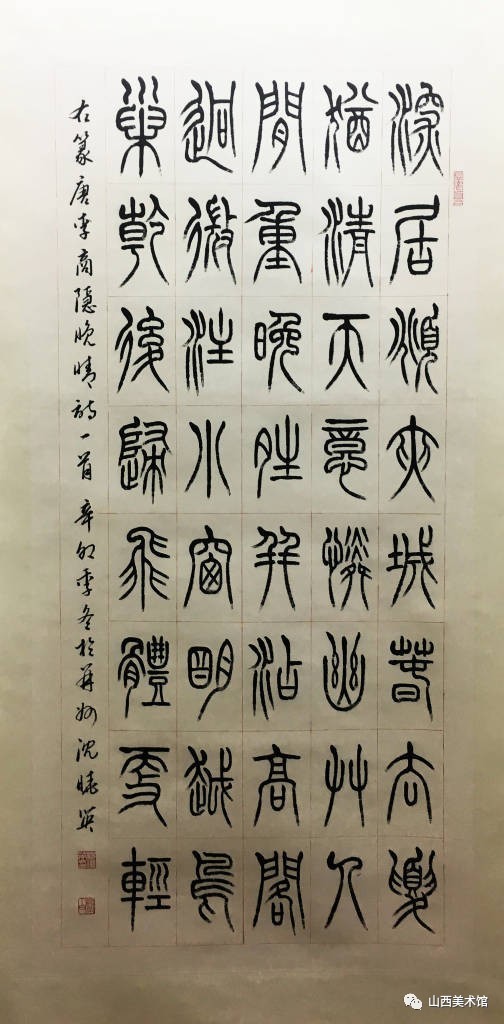 深居頫夾城春去夏
猶清天意憐幽艸人
間重晚晴并沾高閣
迥微注小窗明越鳥
巢乾後歸飛體更輕
右篆唐李商隱晚晴詩一首 辛卯季冬於并州沈曉英
山西美术馆